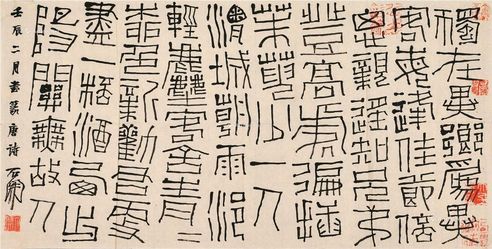 獨在異鄉為異
客每逢佳節倍
思親遙知兄弟
登高處遍插
茱萸少一人
渭城朝雨浥
輕塵客舍青〻
柳色新勸君更
盡一桮酒西出
陽關無故人
壬辰二月書篆唐詩 石開